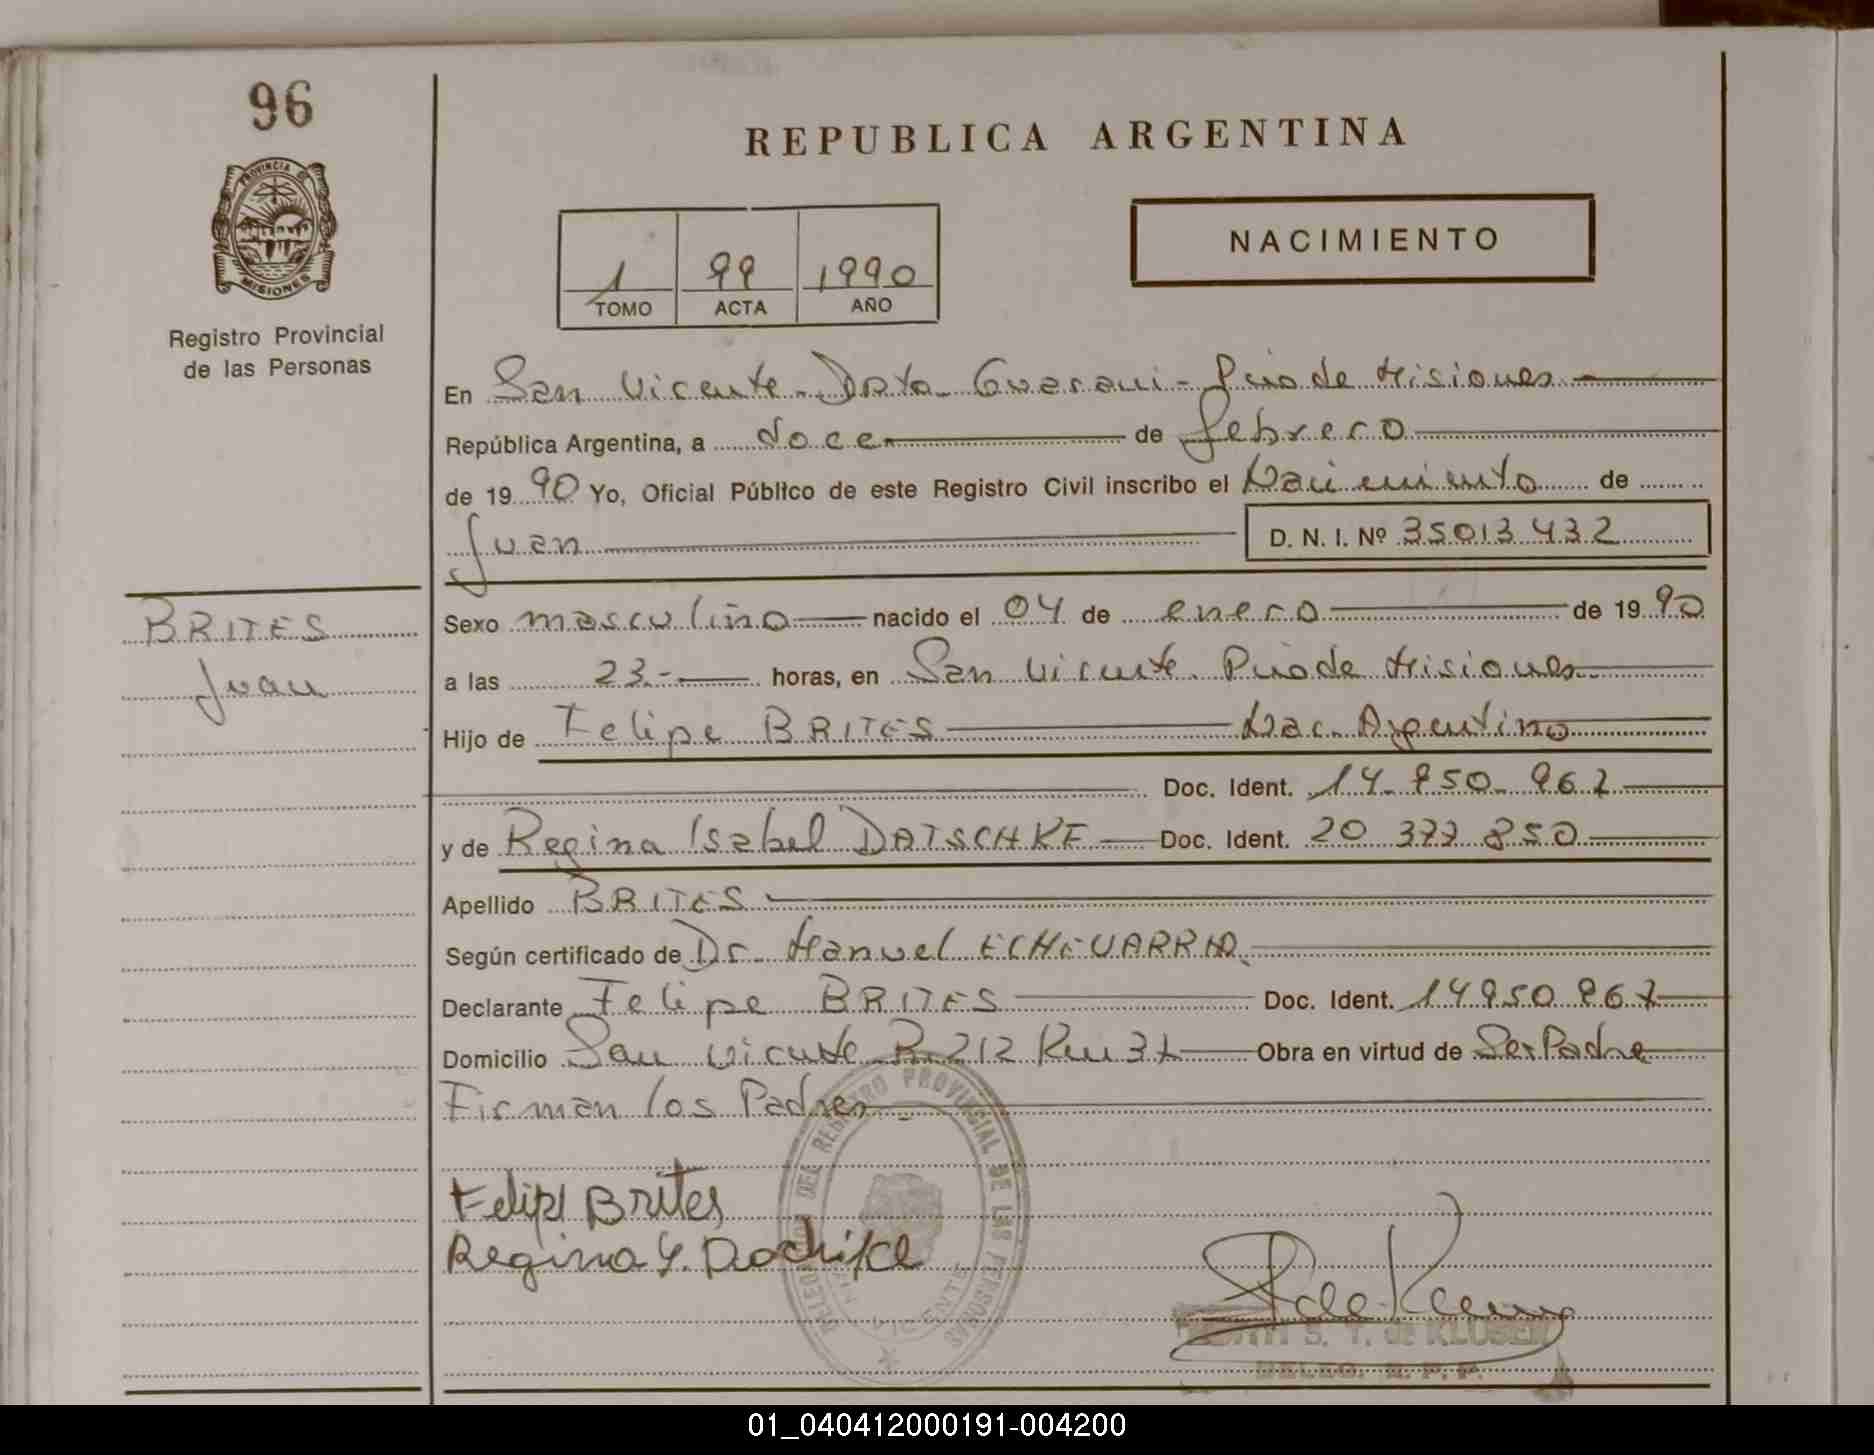 96
PROVINCIA DE
MISIONES
Registro Provincial
de las Personas
REPUBLICA ARGENTINA
NACIMIENTO
1 99 1990
TOMO ACTA AÑO
En San Vicente - Dpto. Guarani - Pcia de Misiones
República Argentina, a doce de febrero
de 1990 Yo, Oficial Público de este Registro Civil inscribo el Nacimiento de
Juan D. N. I. Nº 35013432
BRITES
Juan
Sexo masculino nacido el 04 de enero de 1990
a las 23.- horas, en San Vicente Pcia de Misiones
Hijo de Felipe BRITES Nac. Argentino
Doc. Ident. 14.950.967
y de Regina Isabel DATSCHKE Doc. Ident. 20.377.850
Apellido BRITES
Según certificado de Dr. Manuel ECHEVARRIA
Declarante Felipe BRITES Doc. Ident. 14950967
Domicilio San Vicente R. 212 Km 37 Obra en virtud de Ser Padre
Firman los Padres
Felipe Brites
Regina Y.
DELEGACION DEL REGISTRO PROVINCIAL DE LAS PERSONAS
VICENTE
S. T. de KLUSEN
DELEG. R. P. P.
01_040412000191-004200